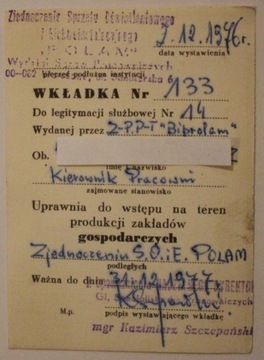 Zjednoczenie Sprzętu Oświetleniowego
"POLAM"
7.12.1976r.
data wystawienia
pieczęć podłużna instytucji
WKŁADKA Nr 133
Do legitymacji służbowej Nr 14
Wydanej przez Z-PP-T "Biprolam"
Ob.
imię i nazwisko
Kierownik Pracowni
zajmowane stanowisko
Uprawnia do wstępu na teren
produkcji zakładów
gospodarczych
Zjednoczeniu S.O.i E. POLAM
podległych
Ważna do dnia 31.12.1977r.
M.p.
podpis wystawiającego wkładkę
mgr Kazimierz Szczepański